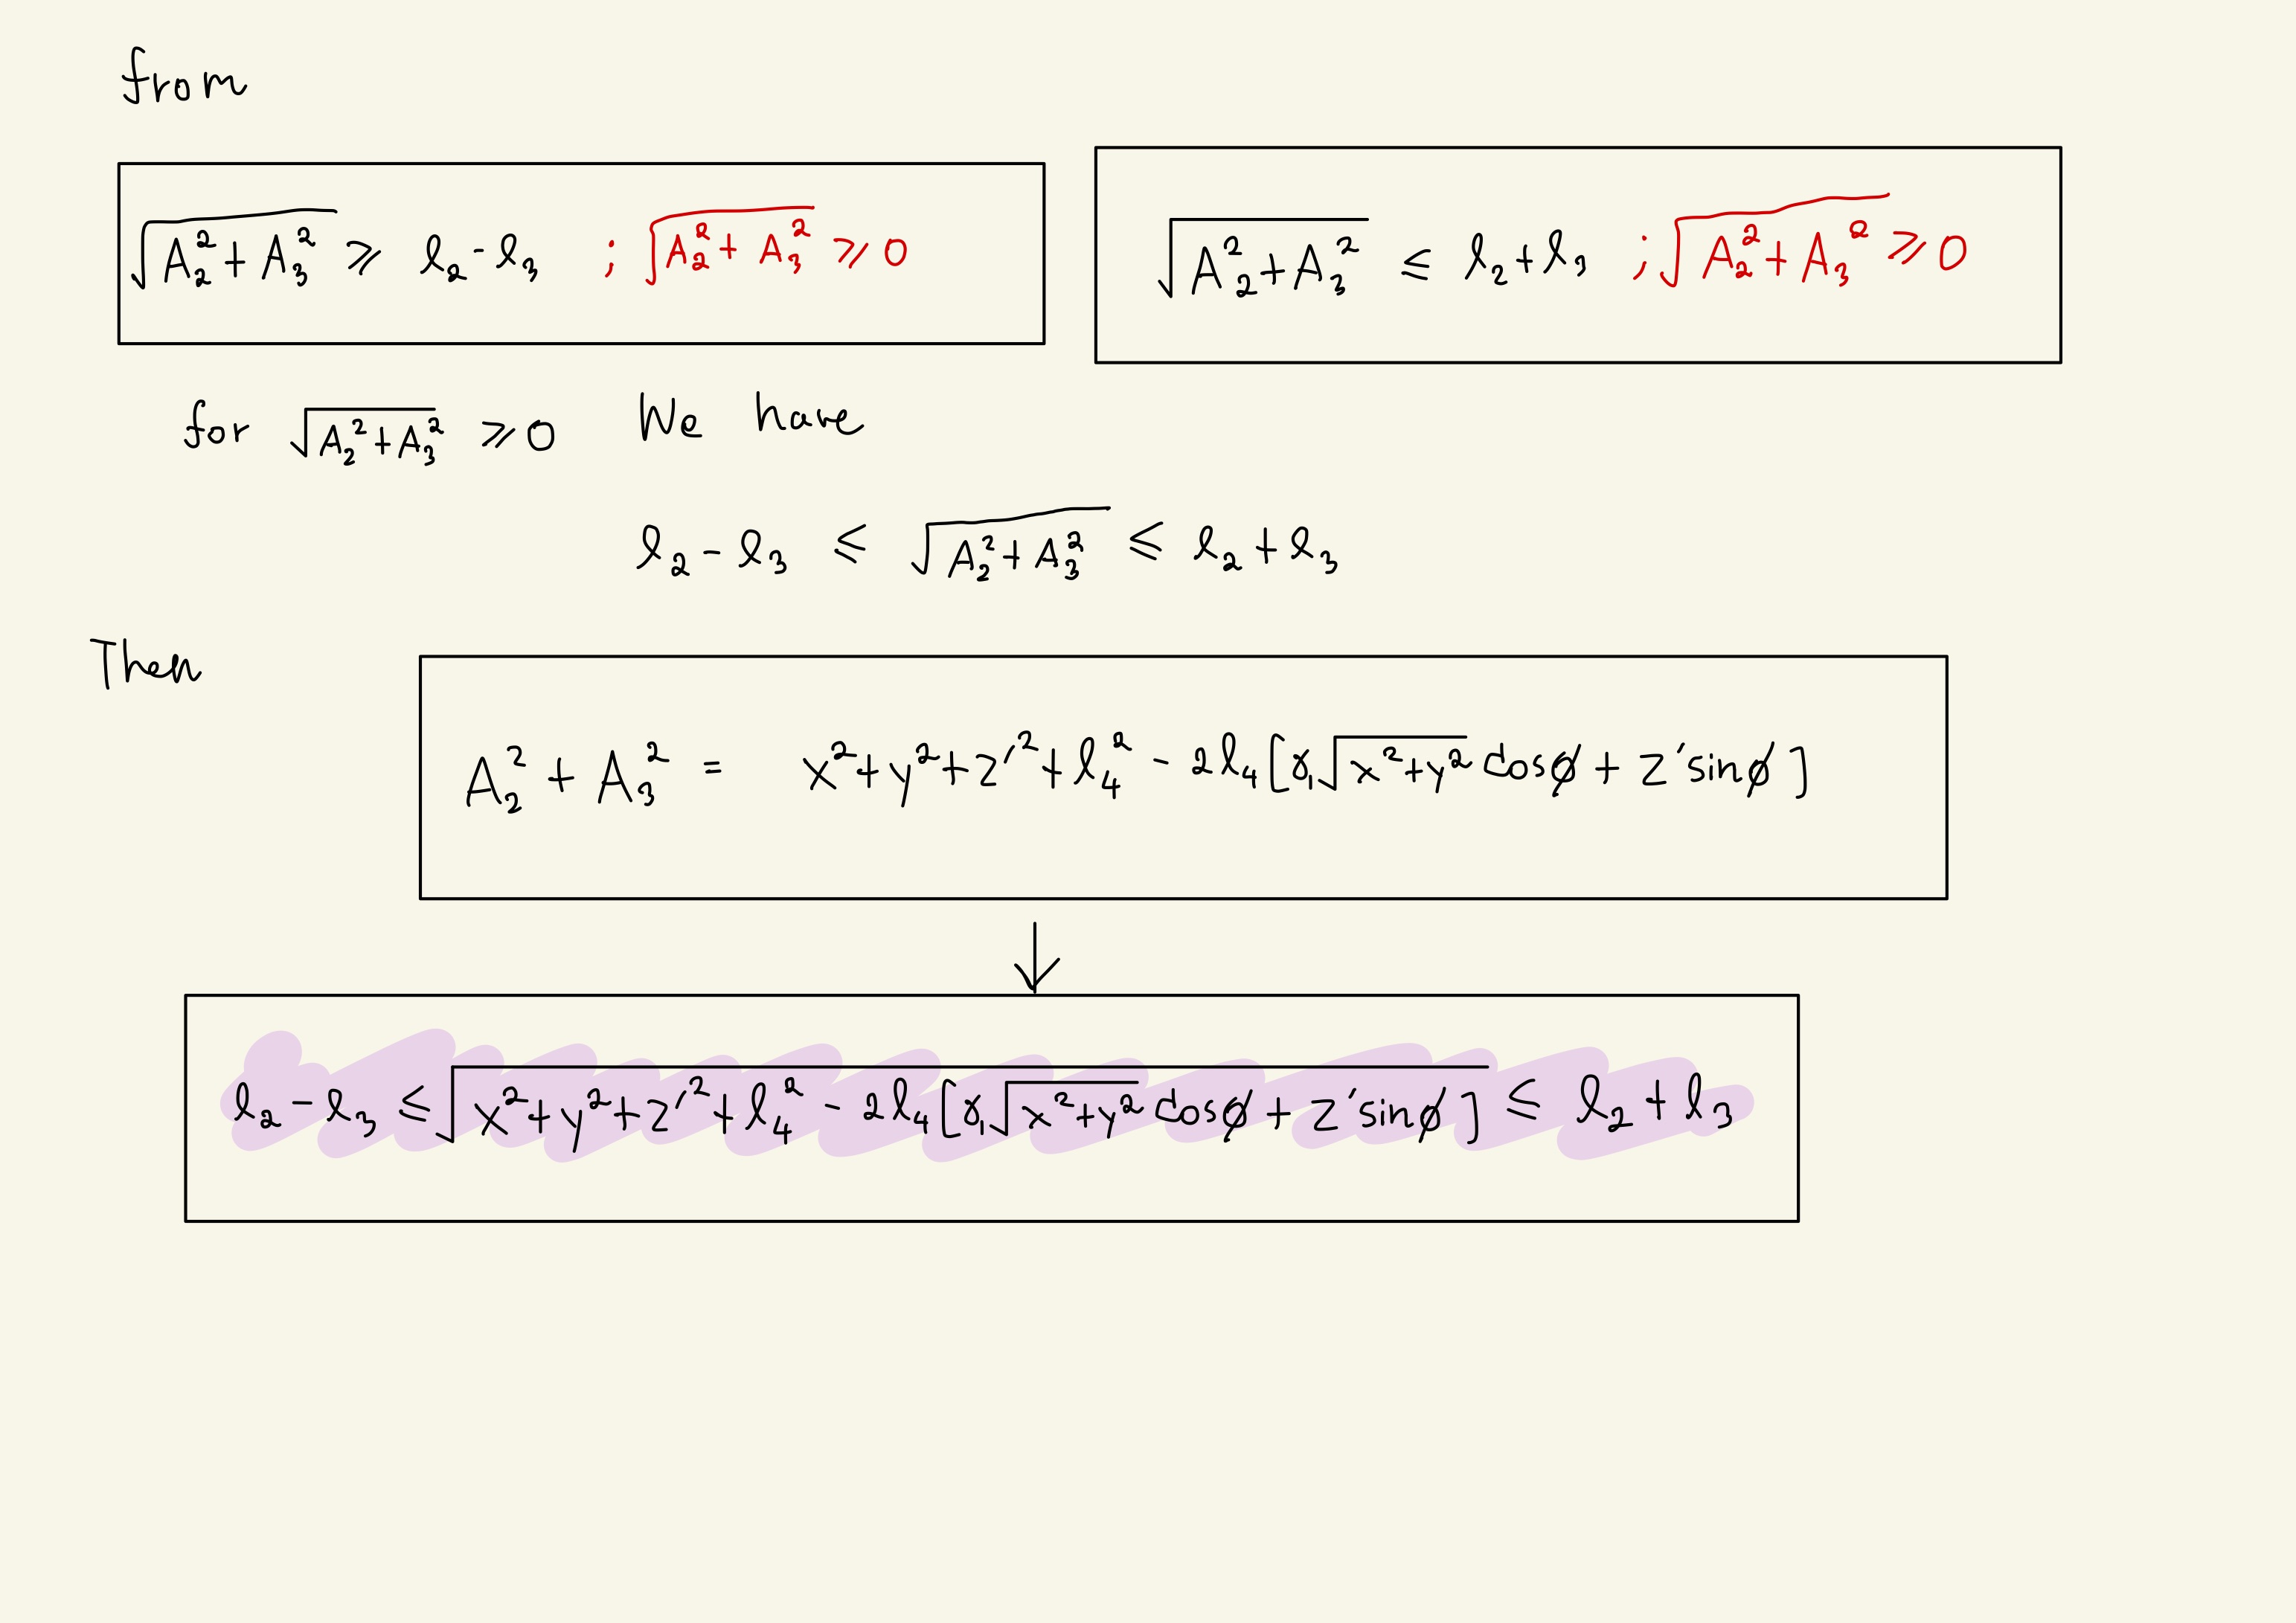 from
√(A₂² + A₃²) ≥ l₂ - l₃ ; √(A₂² + A₃²) ≥ 0
√(A₂² + A₃²) ≤ l₂ + l₃ ; √(A₂² + A₃²) ≥ 0
for √(A₂² + A₃²) ≥ 0 We have
l₂ - l₃ ≤ √(A₂² + A₃²) ≤ l₂ + l₃
Then
A₂² + A₃² = x² + y² + z'² + l₄² - 2l₄[γ₁√(x² + y²) cosϕ + z'sinϕ]
l₂ - l₃ ≤ √(x² + y² + z'² + l₄² - 2l₄[γ₁√(x² + y²) cosϕ + z'sinϕ]) ≤ l₂ + l₃